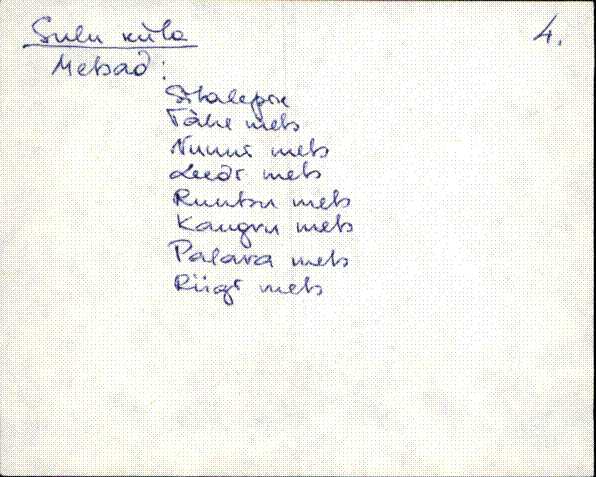 Sulu küla
4.
Metsad:
Sitalepik
Tähe mets
Nunni mets
Leedi mets
Runtsu mets
Kangru mets
Palava mets
Riigi mets